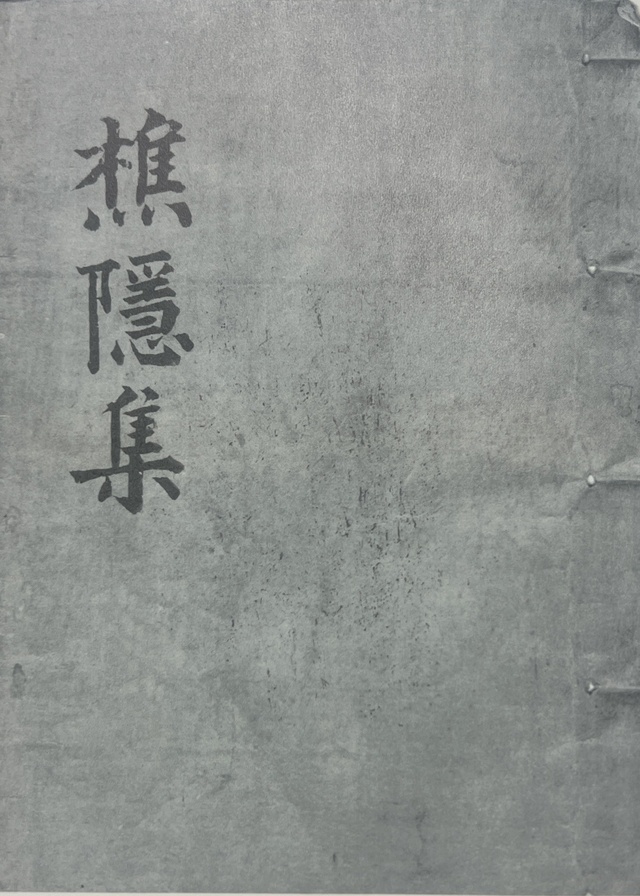 樵隱集